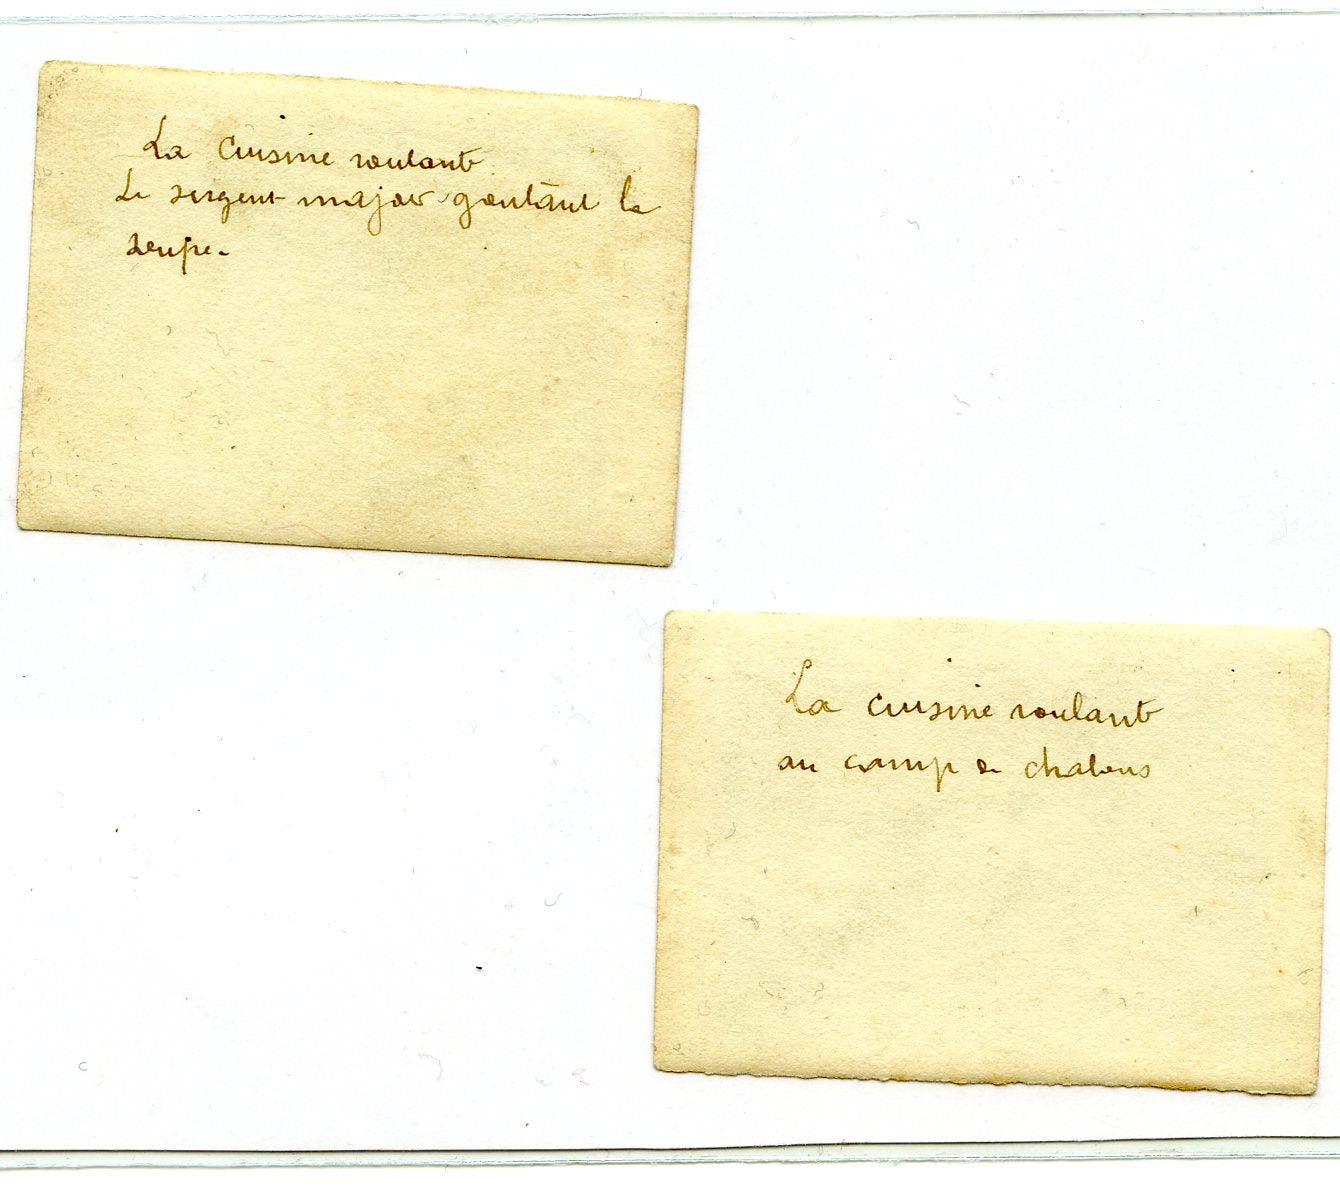 La Cuisine roulant
Le sergent major goutant la
soupe.
La cuisine roulant
au camp de chalons